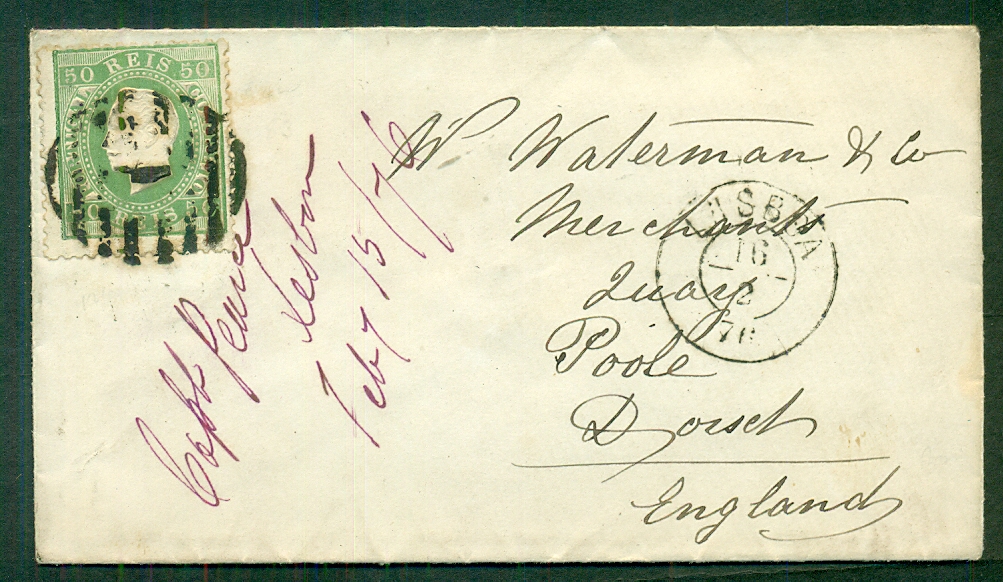 50 REIS 50
Wm Waterman & Co
Merchants
Quay
Poole
Dorset
England
LISBOA
16
2
76
Capt
Lisbon
Feby 15/76